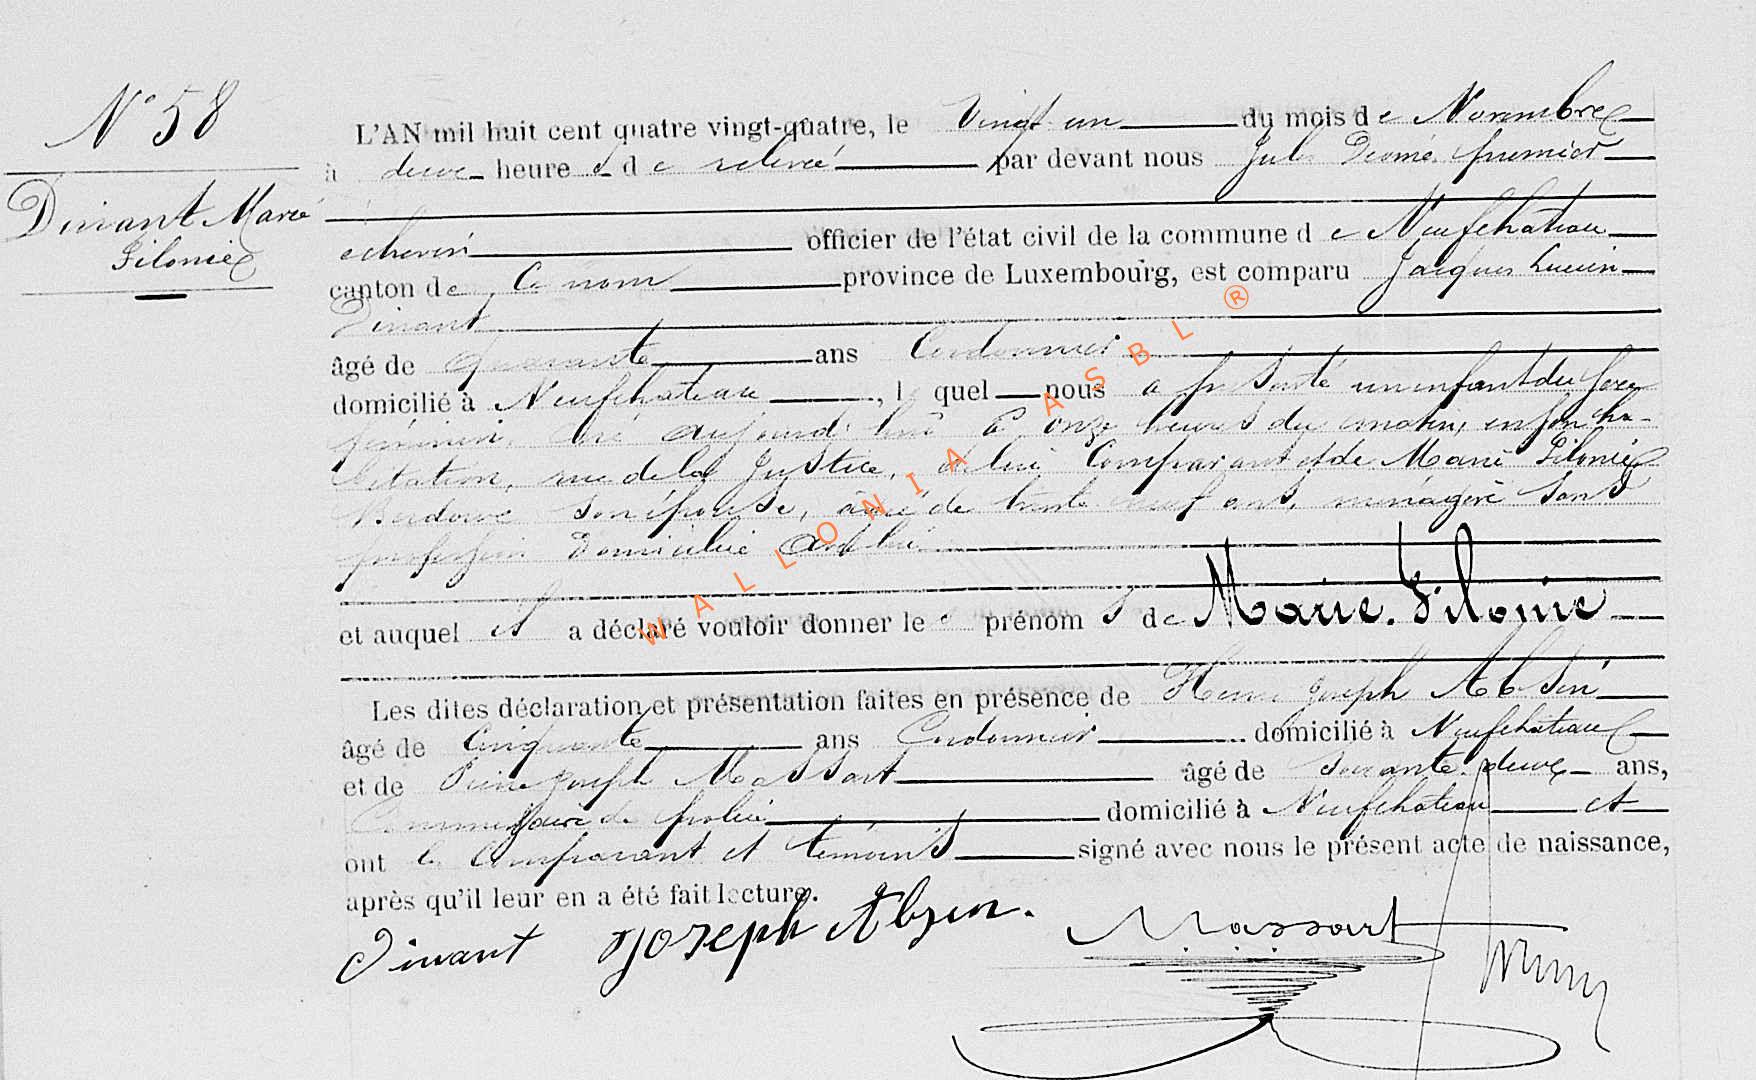 N° 58
Dinant Marie
Filonie
L'AN mil huit cent quatre vingt-quatre, le Vingt un du mois de Novembre
à deux heures de relevée par devant nous Jules premier
échevin officier de l'état civil de la commune de Neufchateau
canton de Ce nom province de Luxembourg, est comparu Jacques Lucien
Dinant
âgé de quarante ans Cordonnier
domicilié à Neufchateau, lequel nous a présenté un enfant du sexe
féminin, né aujourd'hui à onze heures du matin, en son ha-
bitation, rue de la Justice, de lui Comparant et de Marie Filonie
son épouse, âgée de trente neuf ans, ménagère sans
profession Domiciliée avec lui
et auquel il a déclaré vouloir donner les prénoms de Marie. Filonie
Les dites déclaration et présentation faites en présence de Henri Joseph Absin
âgé de Cinquante ans Cordonnier domicilié à Neufchateau
et de Pierre Joseph Massart âgé de soixante deux ans,
Commissaire de police domicilié à Neufchateau et
ont le Comparant et témoins signé avec nous le présent acte de naissance,
après qu'il leur en a été fait lecture.
Dinant Joseph Absin. Massart
WALLONIA ASBL ®